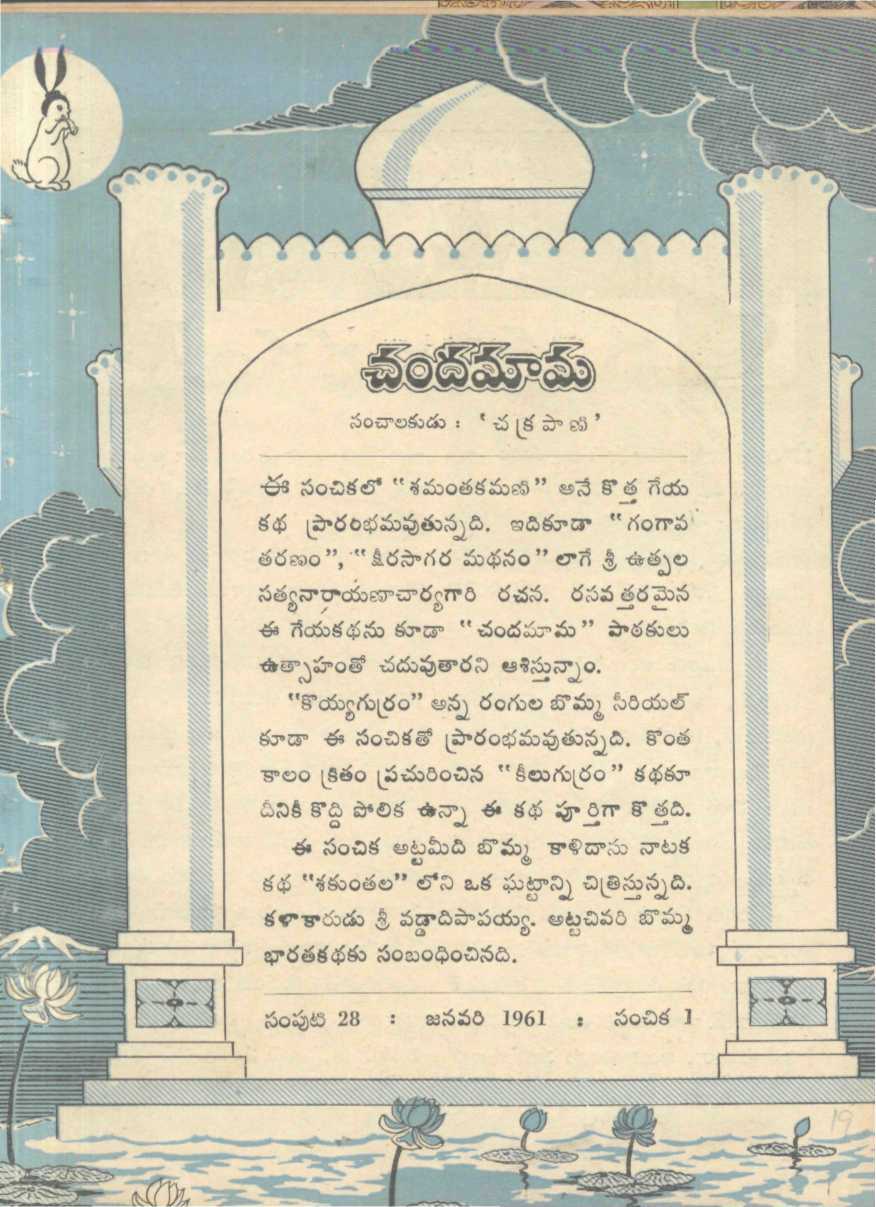 చందమామ
సంచాలకుడు : ‘చక్రపాణి’
ఈ సంచికలో “శమంతకమణి” అనే కొత్త గేయ
కథ ప్రారంభమవుతున్నది. ఇదికూడా “గంగావ
తరణం”, “క్షీరసాగర మథనం” లాగే శ్రీ ఉత్పల
సత్యనారాయణాచార్యగారి రచన. రసవత్తరమైన
ఈ గేయకథను కూడా “చందమామ” పాఠకులు
ఉత్సాహంతో చదువుతారని ఆశిస్తున్నాం.
“కొయ్యగుర్రం” అన్న రంగుల బొమ్మ సీరియల్
కూడా ఈ సంచికతో ప్రారంభమవుతున్నది. కొంత
కాలం క్రితం ప్రచురించిన “కీలుగుర్రం” కథకూ
దీనికీ కొద్ది పోలిక ఉన్నా ఈ కథ పూర్తిగా కొత్తది.
ఈ సంచిక అట్టమీది బొమ్మ కాళిదాసు నాటక
కథ “శకుంతల” లోని ఒక ఘట్టాన్ని చిత్రిస్తున్నది.
కళాకారుడు శ్రీ వడ్డాదిపాపయ్య. అట్టచివరి బొమ్మ
భారతకథకు సంబంధించినది.
సంపుటి 28 : జనవరి 1961 : సంచిక 1
19